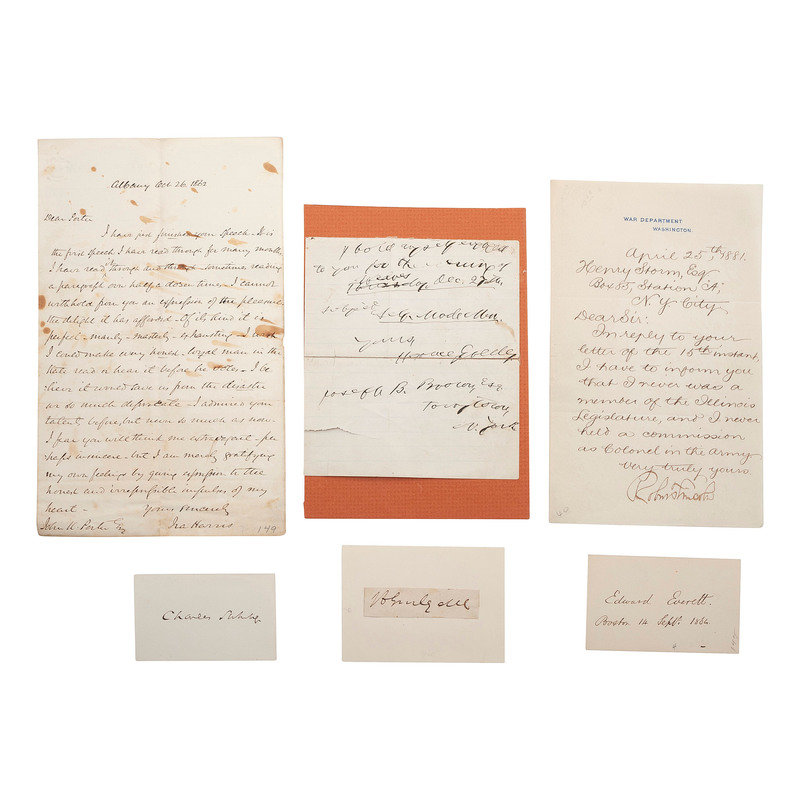 Albany Oct 26. 1862
Dear Porter
I have just finished your speech. It is
the first speech I have read through for many months
I have read it through and through sometimes reading
a paragraph over half a dozen times. I cannot
withhold from you an expression of the pleasure
the delight it has afforded. Of its kind it is
perfect - manly - masterly - exhausting - I wish
I could make every honest, loyal man in the
State read or hear it before he votes. I be
lieve it would save us from the disaster
we so much deprecate. I admired your
talent before, but never so much as now.
I fear you will think me extravagant - per
haps insincere - but I am merely gratifying
my own feelings by giving expression to the
honest and irrepressible impulses of my
heart.
Yours Sincerely
John K. Porter Esq Ira Harris
149
I hold myself engaged
to you for the evening of
Dec. 27th
Yours
Horace Greeley
Joseph B. Esq.
N. York
WAR DEPARTMENT
WASHINGTON
April 25th, 1881.
Henry Storm, Esq
Box 65, Station A;
N.Y. City
Dear Sir:
In reply to your
letter of the 15th instant,
I have to inform you
that I never was a
member of the Illinois
Legislature, and I never
held a commission
as Colonel in the Army
Very truly yours.
Charles
Edward Everett.
Boston 14 Sept. 1864